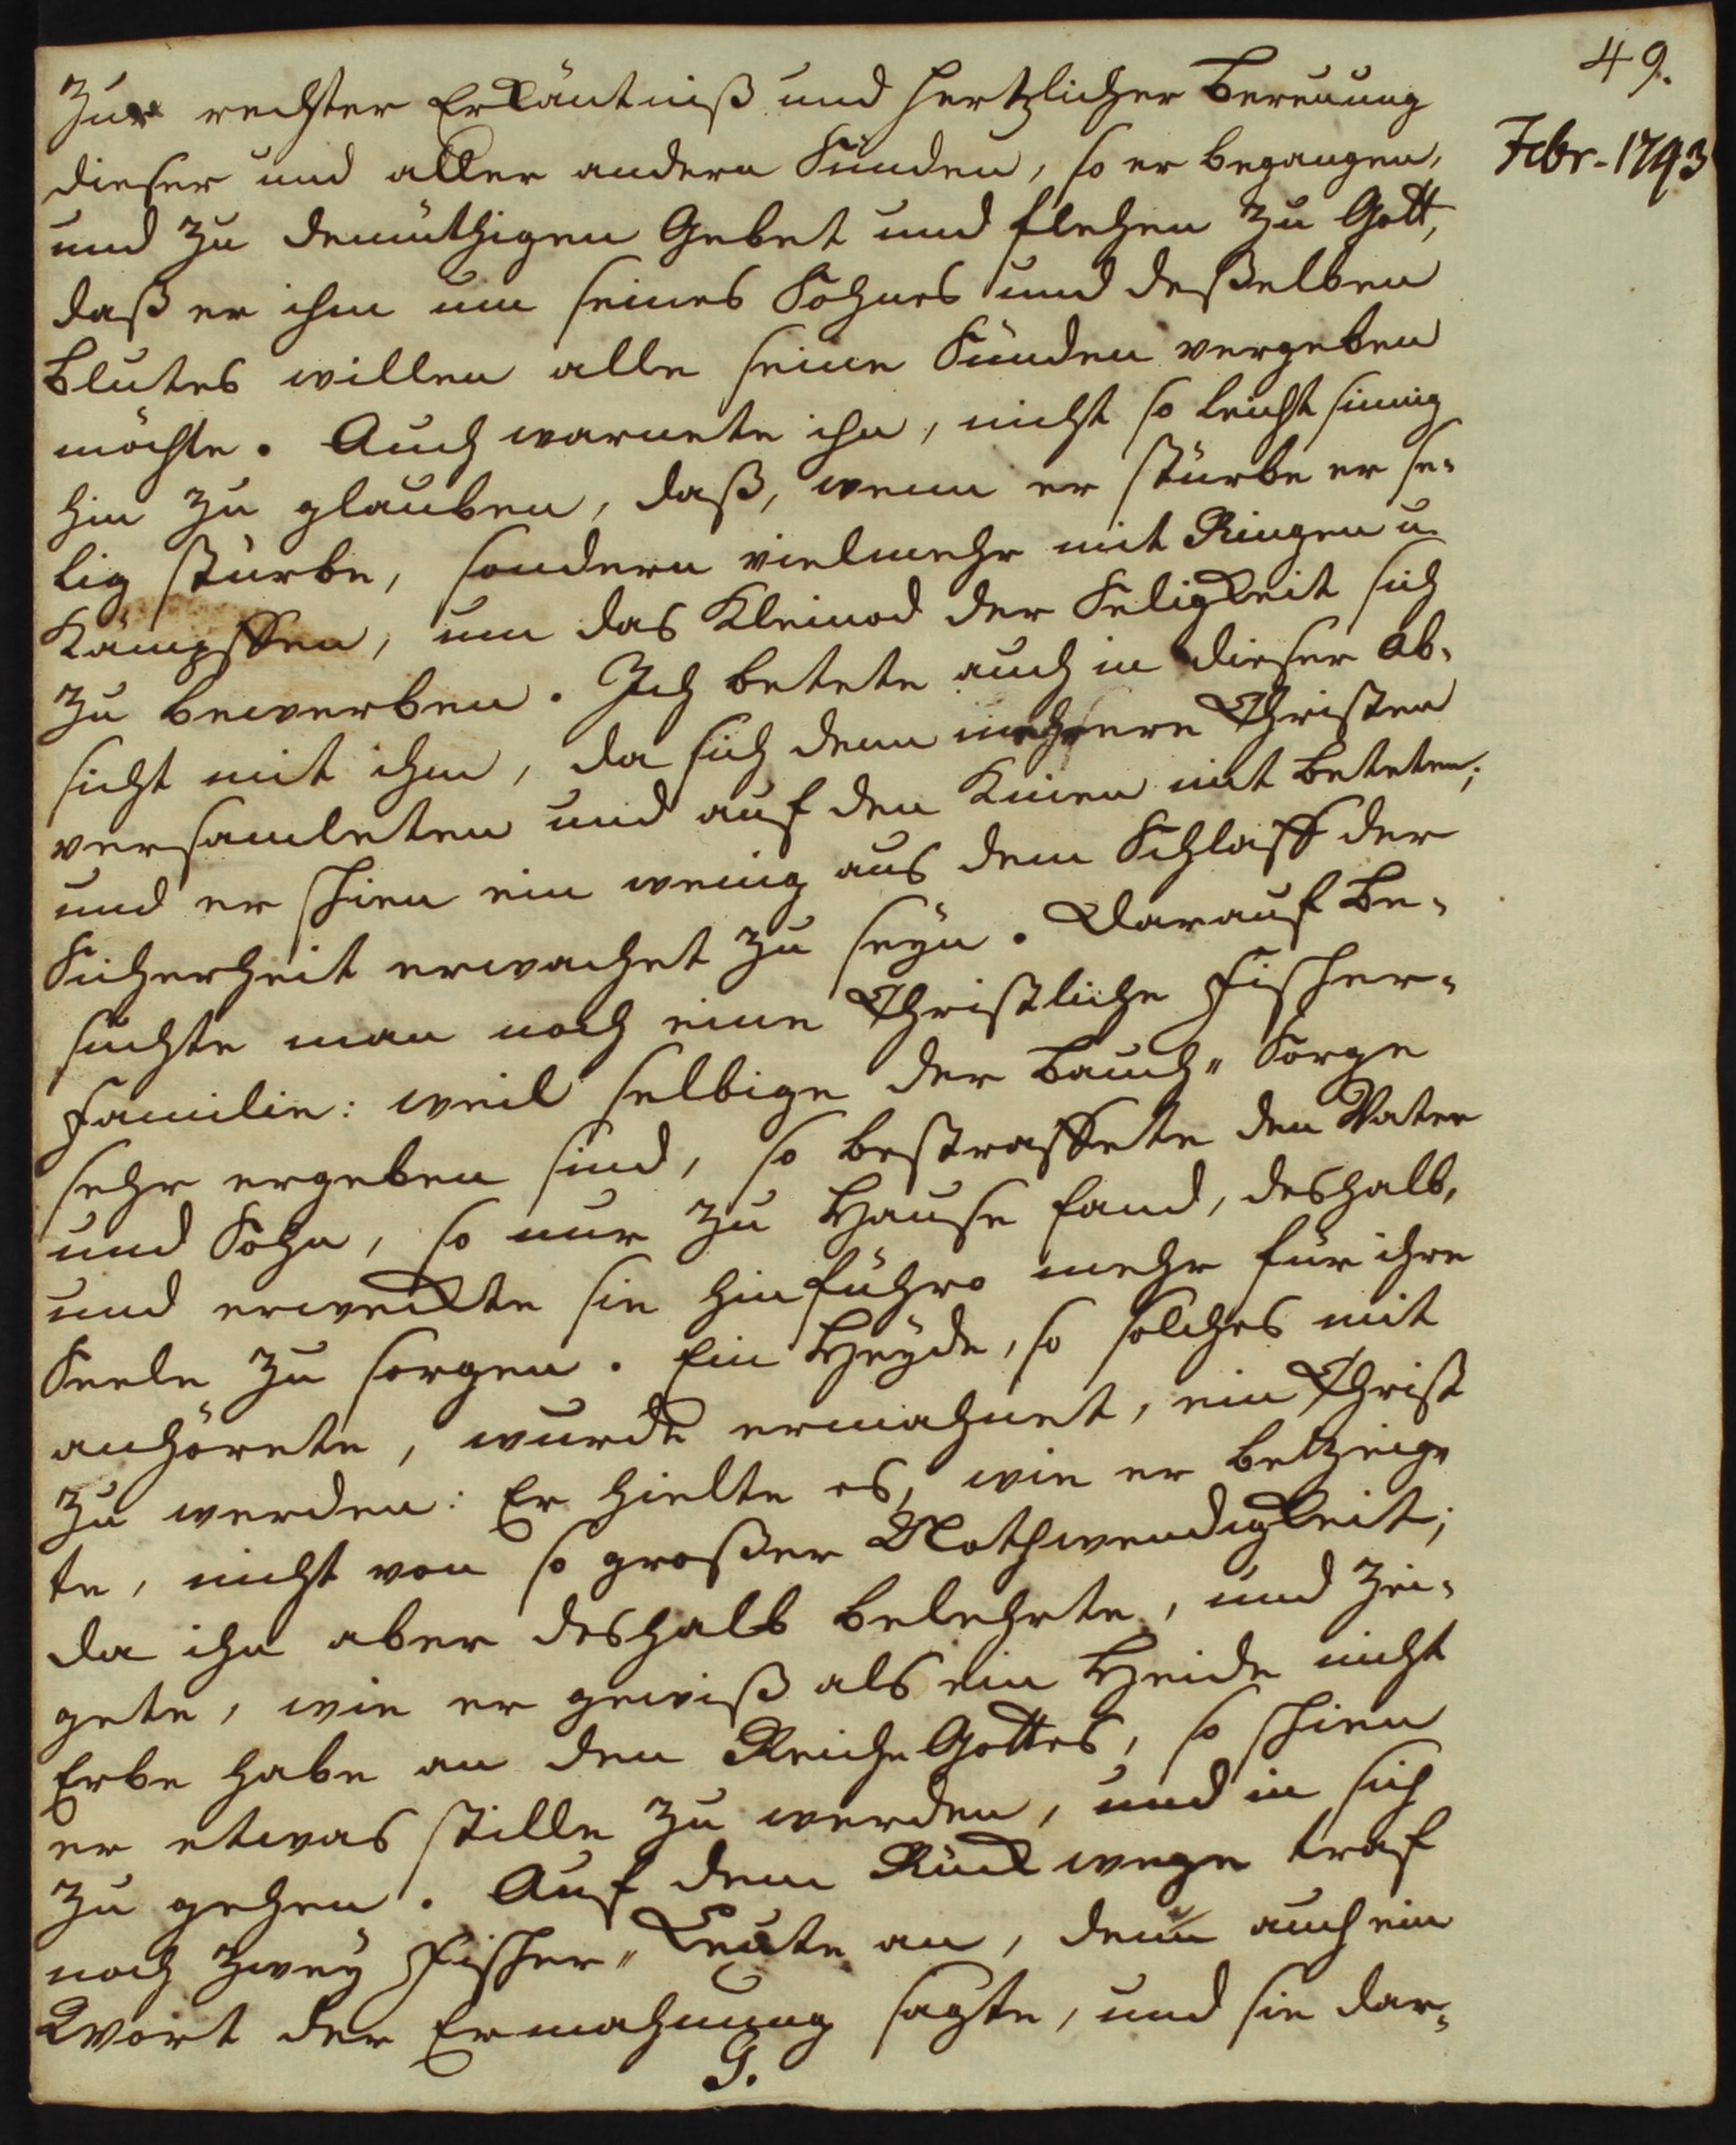 49.
Febr. 1793
Zur rechter Erkäntniß und hertzlicher Bereuung
dieser und aller andern Sünden, so er begangen,
und zu demüthigen Gebet und flehen zu Gott,
daß er ihm um seines Sohnes und deßelben
Blutes willen alle seine Sünden vergeben
möchte. Auch warnete ihn, nicht so leicht sinnig
hin zu glauben, daß, wenn er stürbe er se-
lig stürbe, sondern vielmehr mit Ringen u.
Kämpffen, um das Kleinod der Seligkeit sich
zu bewerben. Ich betete auch in dieser Ab-
sicht mit ihm, da sich denn mehrere Christen
versamleten und auf den Knien mit beteten;
und er schien ein wenig aus dem Schlaff der
Sicherheit erwachet zu seyn. Darauf be-
suchte man noch eine Christliche Fischer-
Familie: weil selbige der Bauch-Sorge
sehr ergeben sind, so bestraffete den Vater
und Sohn, so nur zu Hause fand, deshalb,
und erweckte sie hinführo mehr für ihre
Seele zu sorgen. Ein Heyde, so solches mit
anhörete, wurde ermahnet, ein Christ
zu werden: Er hielte es, wie er bezeig-
te, nicht von so großer Nothwendigkeit;
da ihn aber deshalb belehrte, und zei-
gete, wie er gewiß als ein Heide nicht
Erbe habe an den Reiche Gottes, so schien
er etwas stille zu werden, und in sich
zu gehen. Auf dem Rück wege traf
noch zwey Fischer-Leute an, denn auch ein
Wort der Ermahnung sagte, und sie dar-
G.